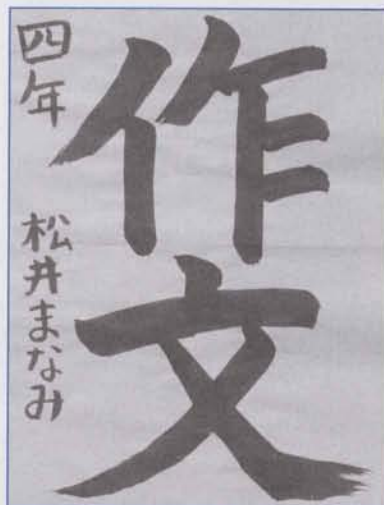 作文
四年 松井まなみ